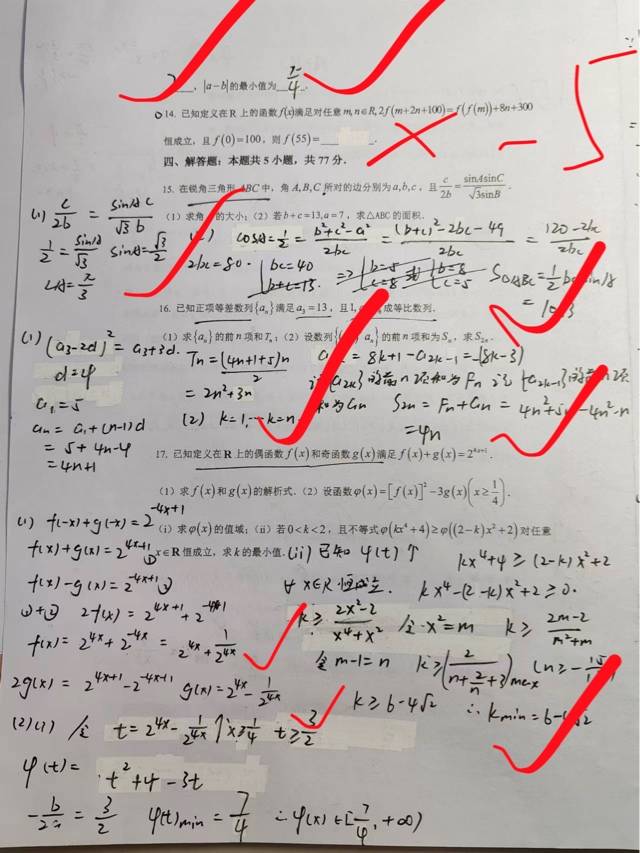 ，|a−b|的最小值为 7/4 .
14. 已知定义在R上的函数f(x)满足对任意m,n∈R,2f(m+2n+100)=f(f(m))+8n+300
恒成立，且f(0)=100，则f(55)=
-5
四、解答题：本题共5小题，共77分.
15. 在锐角三角形ABC中，角A,B,C所对的边分别为a,b,c，且c/2b=sinAsinC/√3sinB.
（1）求角 的大小；（2）若b+c=13,a=7，求△ABC的面积.
(1) c/2b = sinA c/√3 b
1/2 = sinA/√3 sinA=√3/2
∠A=π/3
cosA=1/2=b²+c²-a²/2bc=(b+c)²-2bc-49/2bc=120-2bc/2bc
2bc=80. {bc=40 b+c=13. ⇒ {b=5 c=8 或 {b=8 c=5
S△ABC=1/2 bc sinA
16. 已知正项等差数列{aₙ}满足a₃=13，且1, 成等比数列.
（1）求{aₙ}的前n项和Tₙ；（2）设数列{ }的前n项和为Sₙ，求S₂ₙ.
(1) (a₃-2d)²=a₃+3d.
d=4
a₁=5
aₙ=a₁+(n-1)d
=5+4n-4
=4n+1
Tₙ=(4n+1+5)n/2
=2n²+3n
(2) k=1,…k=n
=8k+1-a₂ₖ₋₁=-(8k-3)
{a₂ₖ}的前n项和为Fₙ 记{a₂ₖ₋₁}的前n项
和为Gₙ S₂ₙ=Fₙ+Gₙ=4n²+5n-4n²-n
=4n
17. 已知定义在R上的偶函数f(x)和奇函数g(x)满足f(x)+g(x)=2⁴ˣ⁺¹.
（1）求f(x)和g(x)的解析式.（2）设函数φ(x)=[f(x)]²−3g(x)(x≥1/4).
（i）求φ(x)的值域；（ii）若0<k<2，且不等式φ(kx⁴+4)≥φ((2−k)x²+2)对任意
x∈R恒成立，求k的最小值.
(1) f(-x)+g(-x)=2⁻⁴ˣ⁺¹
f(x)+g(x)=2⁴ˣ⁺¹①
f(x)-g(x)=2⁻⁴ˣ⁺¹②
①+② 2f(x)=2⁴ˣ⁺¹+2⁻⁴ˣ⁺¹
f(x)=2⁴ˣ+2⁻⁴ˣ=2⁴ˣ+1/2⁴ˣ
2g(x)=2⁴ˣ⁺¹-2⁻⁴ˣ⁺¹ g(x)=2⁴ˣ-1/2⁴ˣ
(2)(i) 令 t=2⁴ˣ-1/2⁴ˣ↑ x≥1/4 t≥3/2
φ(t)= t²+4-3t
-b/2a=3/2 φ(t)min=7/4 ∴φ(x)∈[7/4,+∞)
(ii)已知φ(t)↑ kx⁴+4≥(2-k)x²+2
∀x∈R恒成立. kx⁴-(2-k)x²+2≥0.
k≥2x²-2/x⁴+x² 令x²=m k≥2m-2/m²+m
令m-1=n k≥(2/n+2/n+3)max
k≥6-4√2 ∴kmin=6-4√2